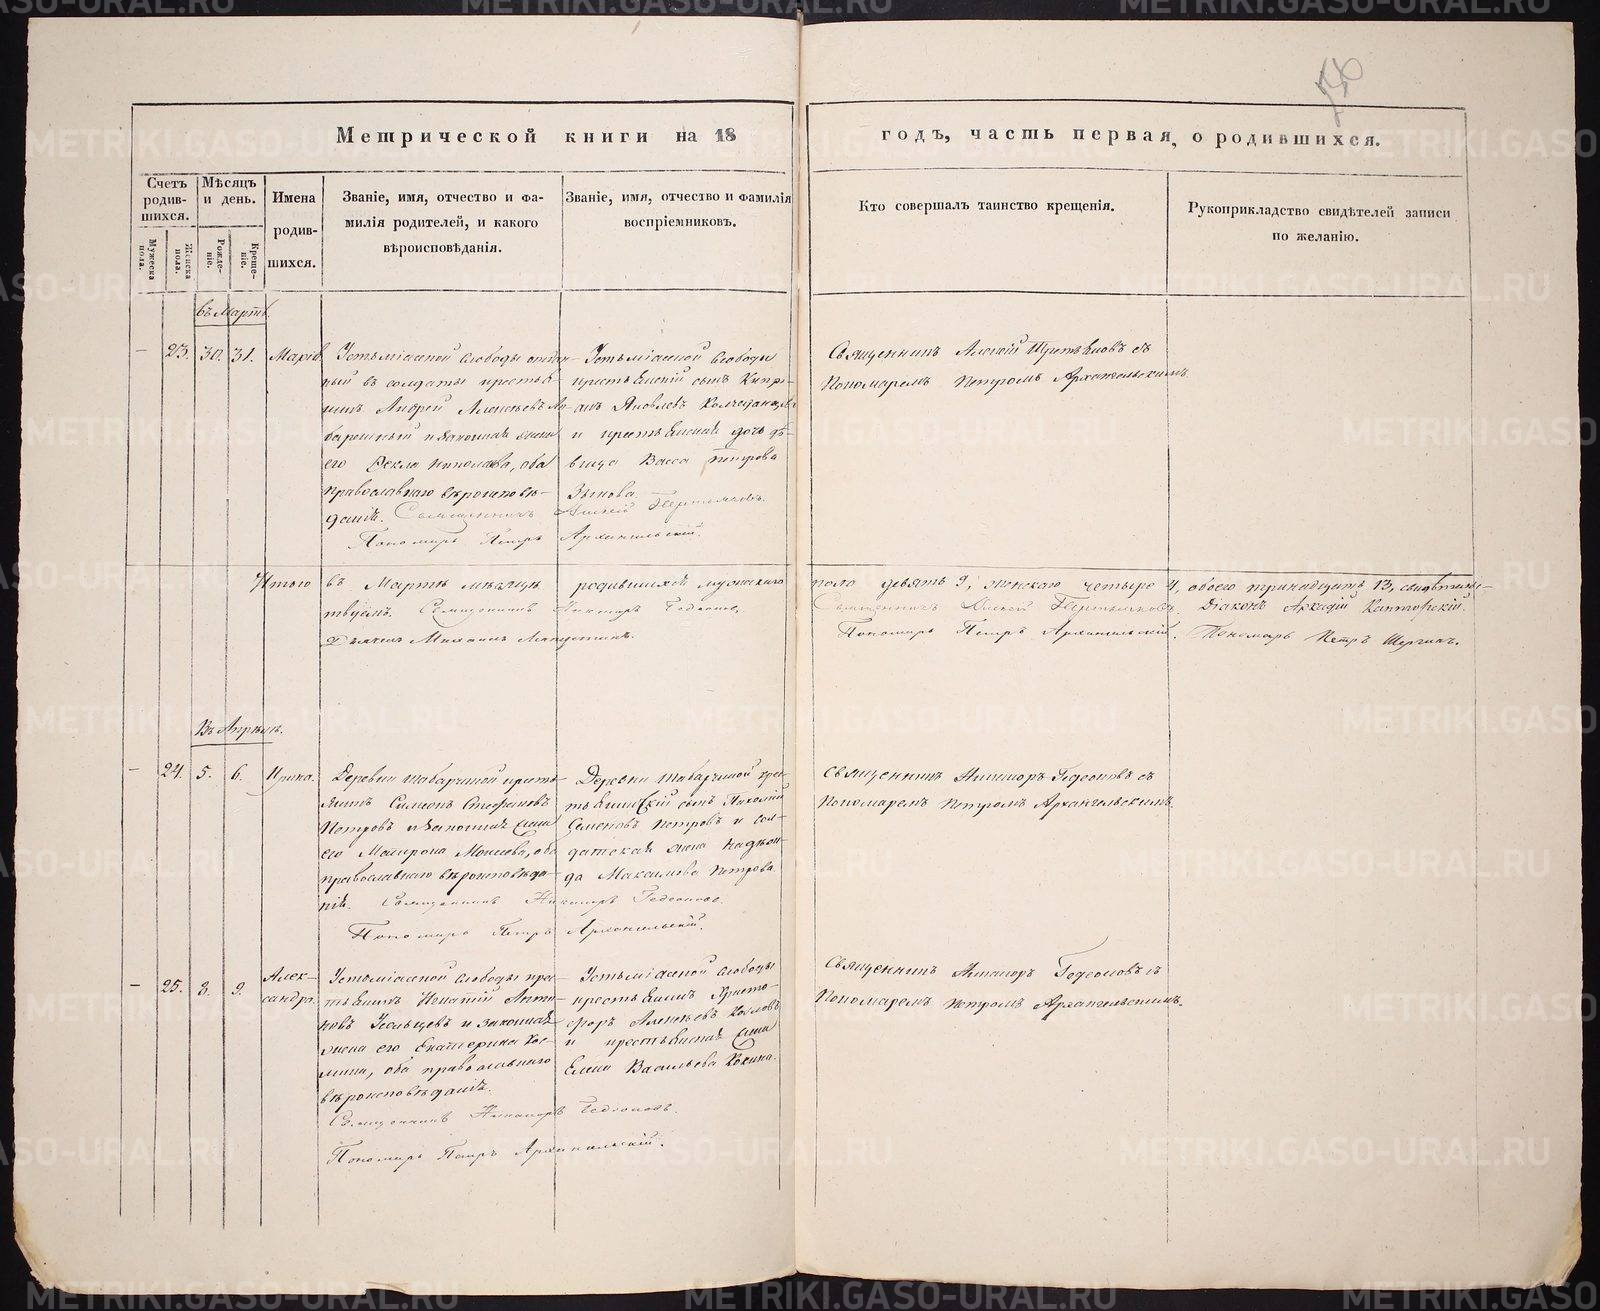 Метрической книги на 18
годъ, часть первая, о родившихся.
Счетъ родив-
шихся.
Мужеска пола.
Женска пола.
Мѣсяцъ
и день.
Рожде-
ніе.
Креще-
ніе.
Имена
родив-
шихся.
Званіе, имя, отчество и фа-
милія родителей, и какого
вѣроисповѣданія.
Званіе, имя, отчество и фамилія
воспріемниковъ.
Кто совершалъ таинство крещенія.
Рукоприкладство свидѣтелей записи
по желанію.
въ Мартѣ
– 23. 30. 31. Марія.
Устьміасской слободы отдан-
ный въ солдаты крестья-
нинъ Андрей Алексѣевъ
и законная жена
его Ѳекла, оба
православнаго вѣроисповѣ-
данія. Священникъ Алексій
Пономарь Петръ Архангельскій.
Устьміасской слободы
крестьянскій сынъ Кипрі-
анъ Яковлевъ
и крестьянская дочь дѣ-
вица Васса Петрова
Зыкова.
Священникъ Алексій съ
Пономаремъ Петромъ Архангельскимъ.
Итого въ Мартѣ мѣсяцѣ родившихся мужескаго
пола девять 9, женскаго четыре 4, обоего тринадцать 13, свидѣтель-
ствуемъ. Священникъ Никаноръ Гедеоновъ,
Священникъ Алексей
Діаконъ Аркадій
Дьячекъ Михаилъ
Пономарь Петръ Архангельскій.
Пономарь Петръ
Въ Апрѣлѣ.
– 24. 5. 6. Ирина.
Деревни Шабарчиной кресть-
янинъ Симеонъ Стефановъ
Петровъ и законная жена
его Матрона Моисеева, оба
православнаго вѣроисповѣда-
нія. Священникъ Никаноръ Гедеоновъ.
Пономарь Петръ Архангельскій.
Деревни Шабарчиной крес-
тьянскій сынъ Пахомій
Семеновъ Петровъ и сол-
датская жена Надѣж-
да Максимова Петрова.
Священникъ Никаноръ Гедеоновъ съ
Пономаремъ Петромъ Архангельскимъ.
– 25. 8. 9. Алек-
сандра.
Устьміасской слободы крес-
тьянинъ Игнатій
Усольцевъ и законная
жена его Екатерина Кос-
мина, оба православнаго
вѣроисповѣданія.
Священникъ Никаноръ Гедеоновъ.
Пономарь Петръ Архангельскій.
Устьміасской слободы
крестьянинъ Христо-
форъ Алексѣевъ Козловъ
и крестьянская жена
Елена Васильева Кокина.
Священникъ Никаноръ Гедеоновъ съ
Пономаремъ Петромъ Архангельскимъ.
METRIKI.GASO-URAL.RU